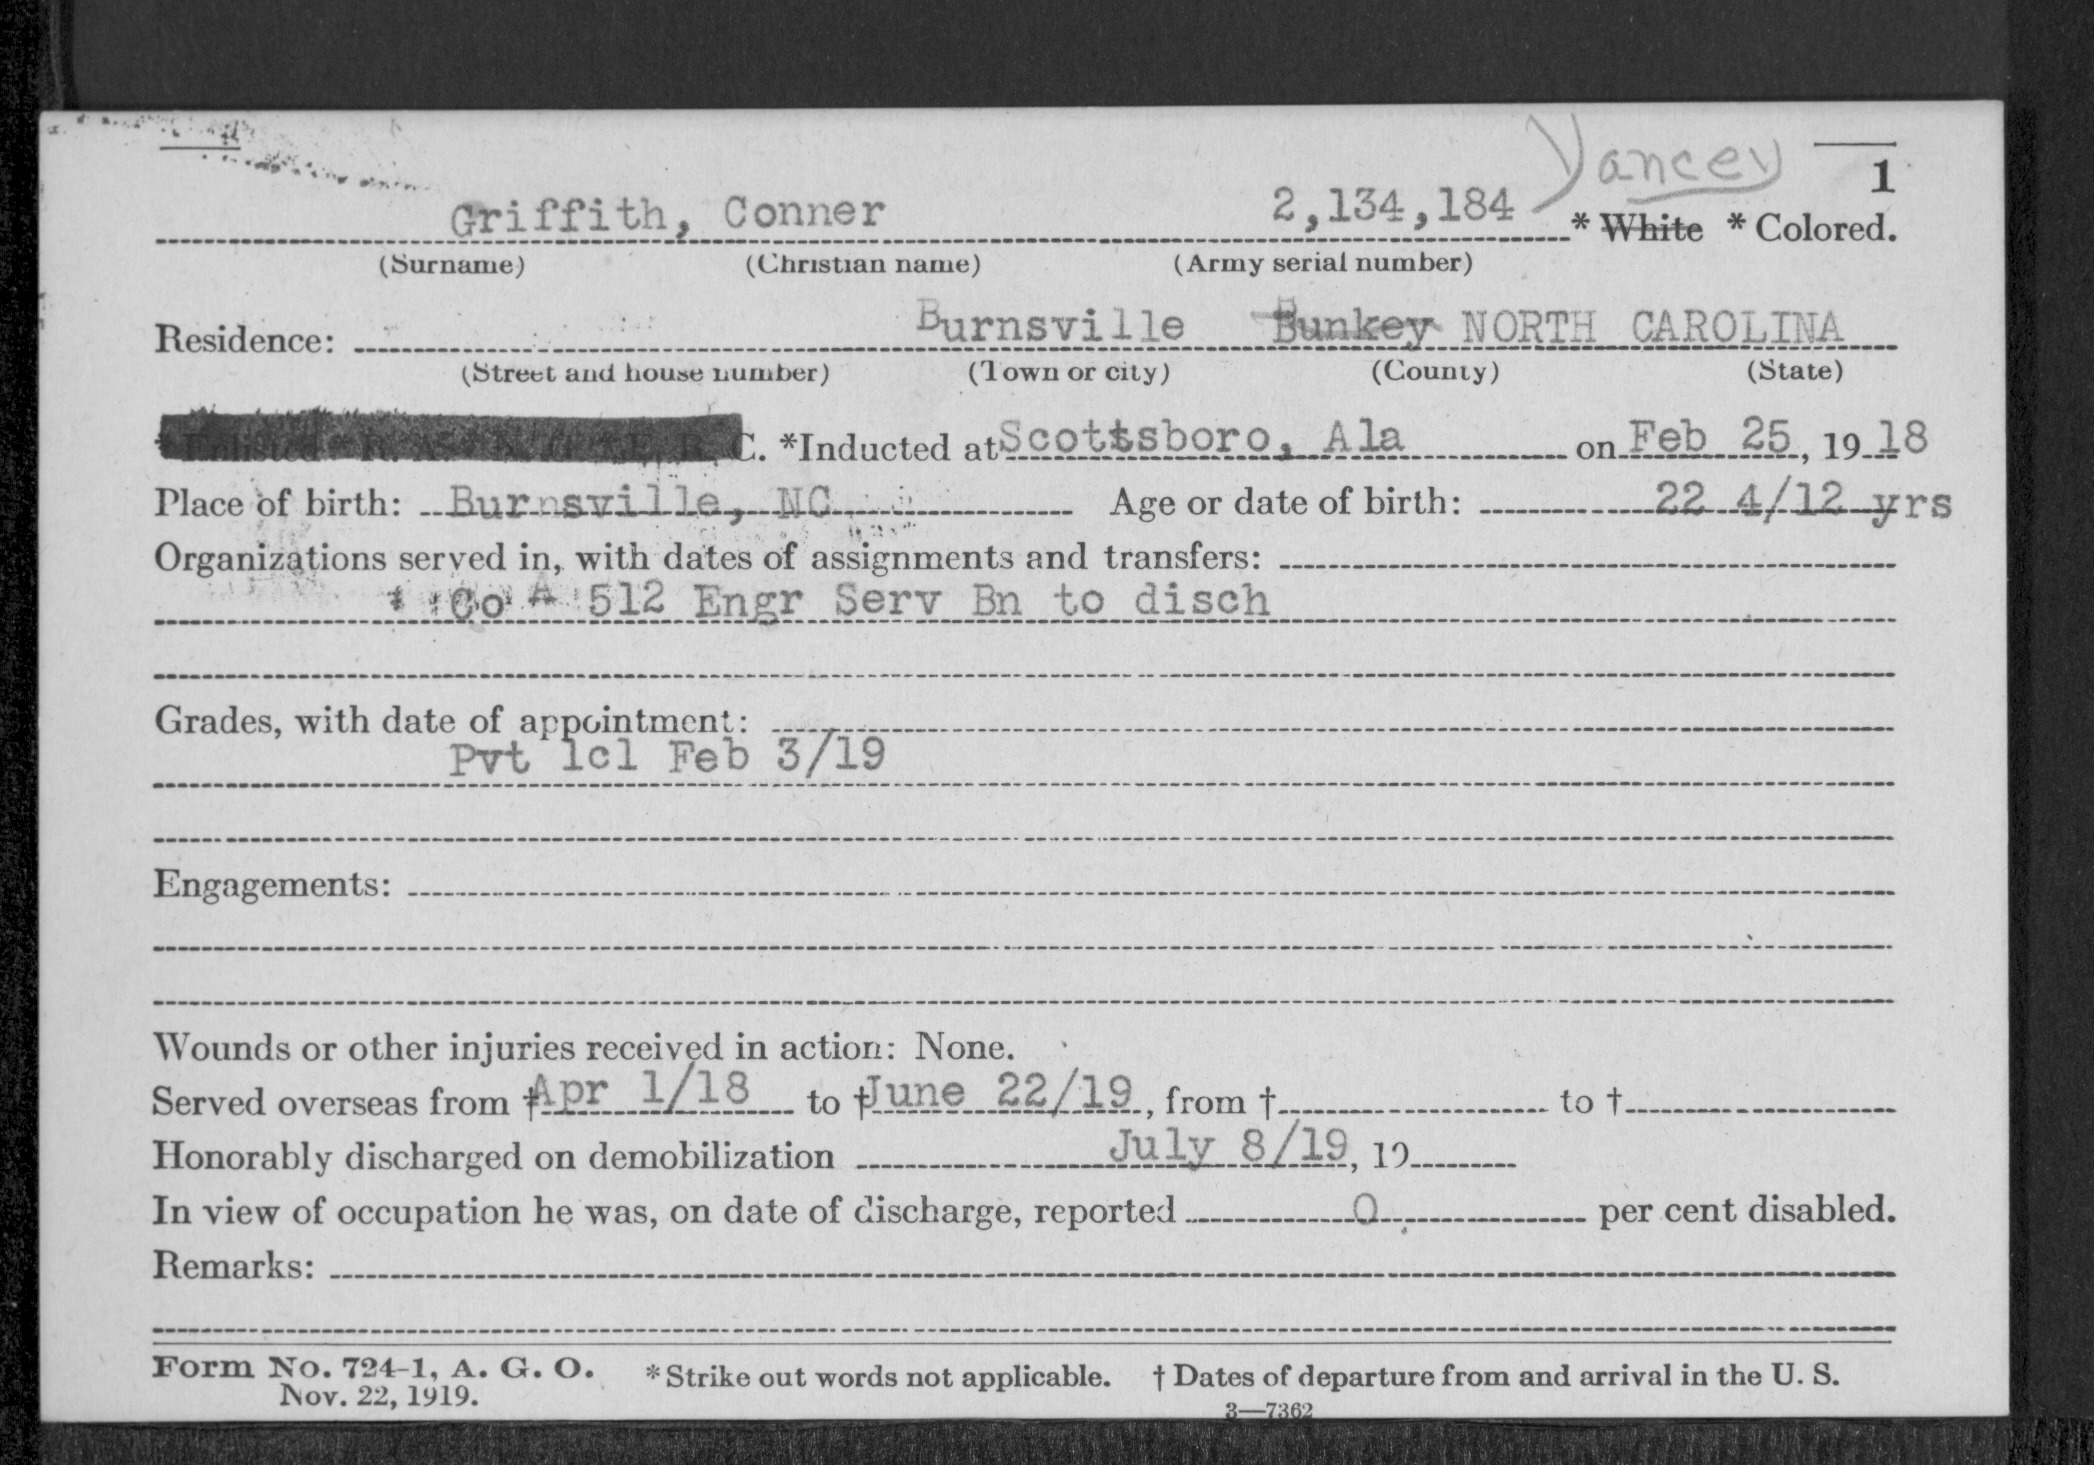 Yancey
1
Griffith, Conner 2,134,184 * White * Colored.
(Surname) (Christian name) (Army serial number)
Residence: Burnsville Bunkey NORTH CAROLINA
(Street and house number) (Town or city) (County) (State)
* Enlisted R. A. N. G. E. R. C. *Inducted at Scottsboro, Ala on Feb 25, 19 18
Place of birth: Burnsville, NC Age or date of birth: 22 4/12 yrs
Organizations served in, with dates of assignments and transfers:
Co A 512 Engr Serv Bn to disch
Grades, with date of appointment:
Pvt 1cl Feb 3/19
Engagements:
Wounds or other injuries received in action: None.
Served overseas from † Apr 1/18 to † June 22/19, from † to †
Honorably discharged on demobilization July 8/19, 19
In view of occupation he was, on date of discharge, reported 0 per cent disabled.
Remarks:
Form No. 724-1, A. G. O. * Strike out words not applicable. † Dates of departure from and arrival in the U. S.
Nov. 22, 1919.
3—7362